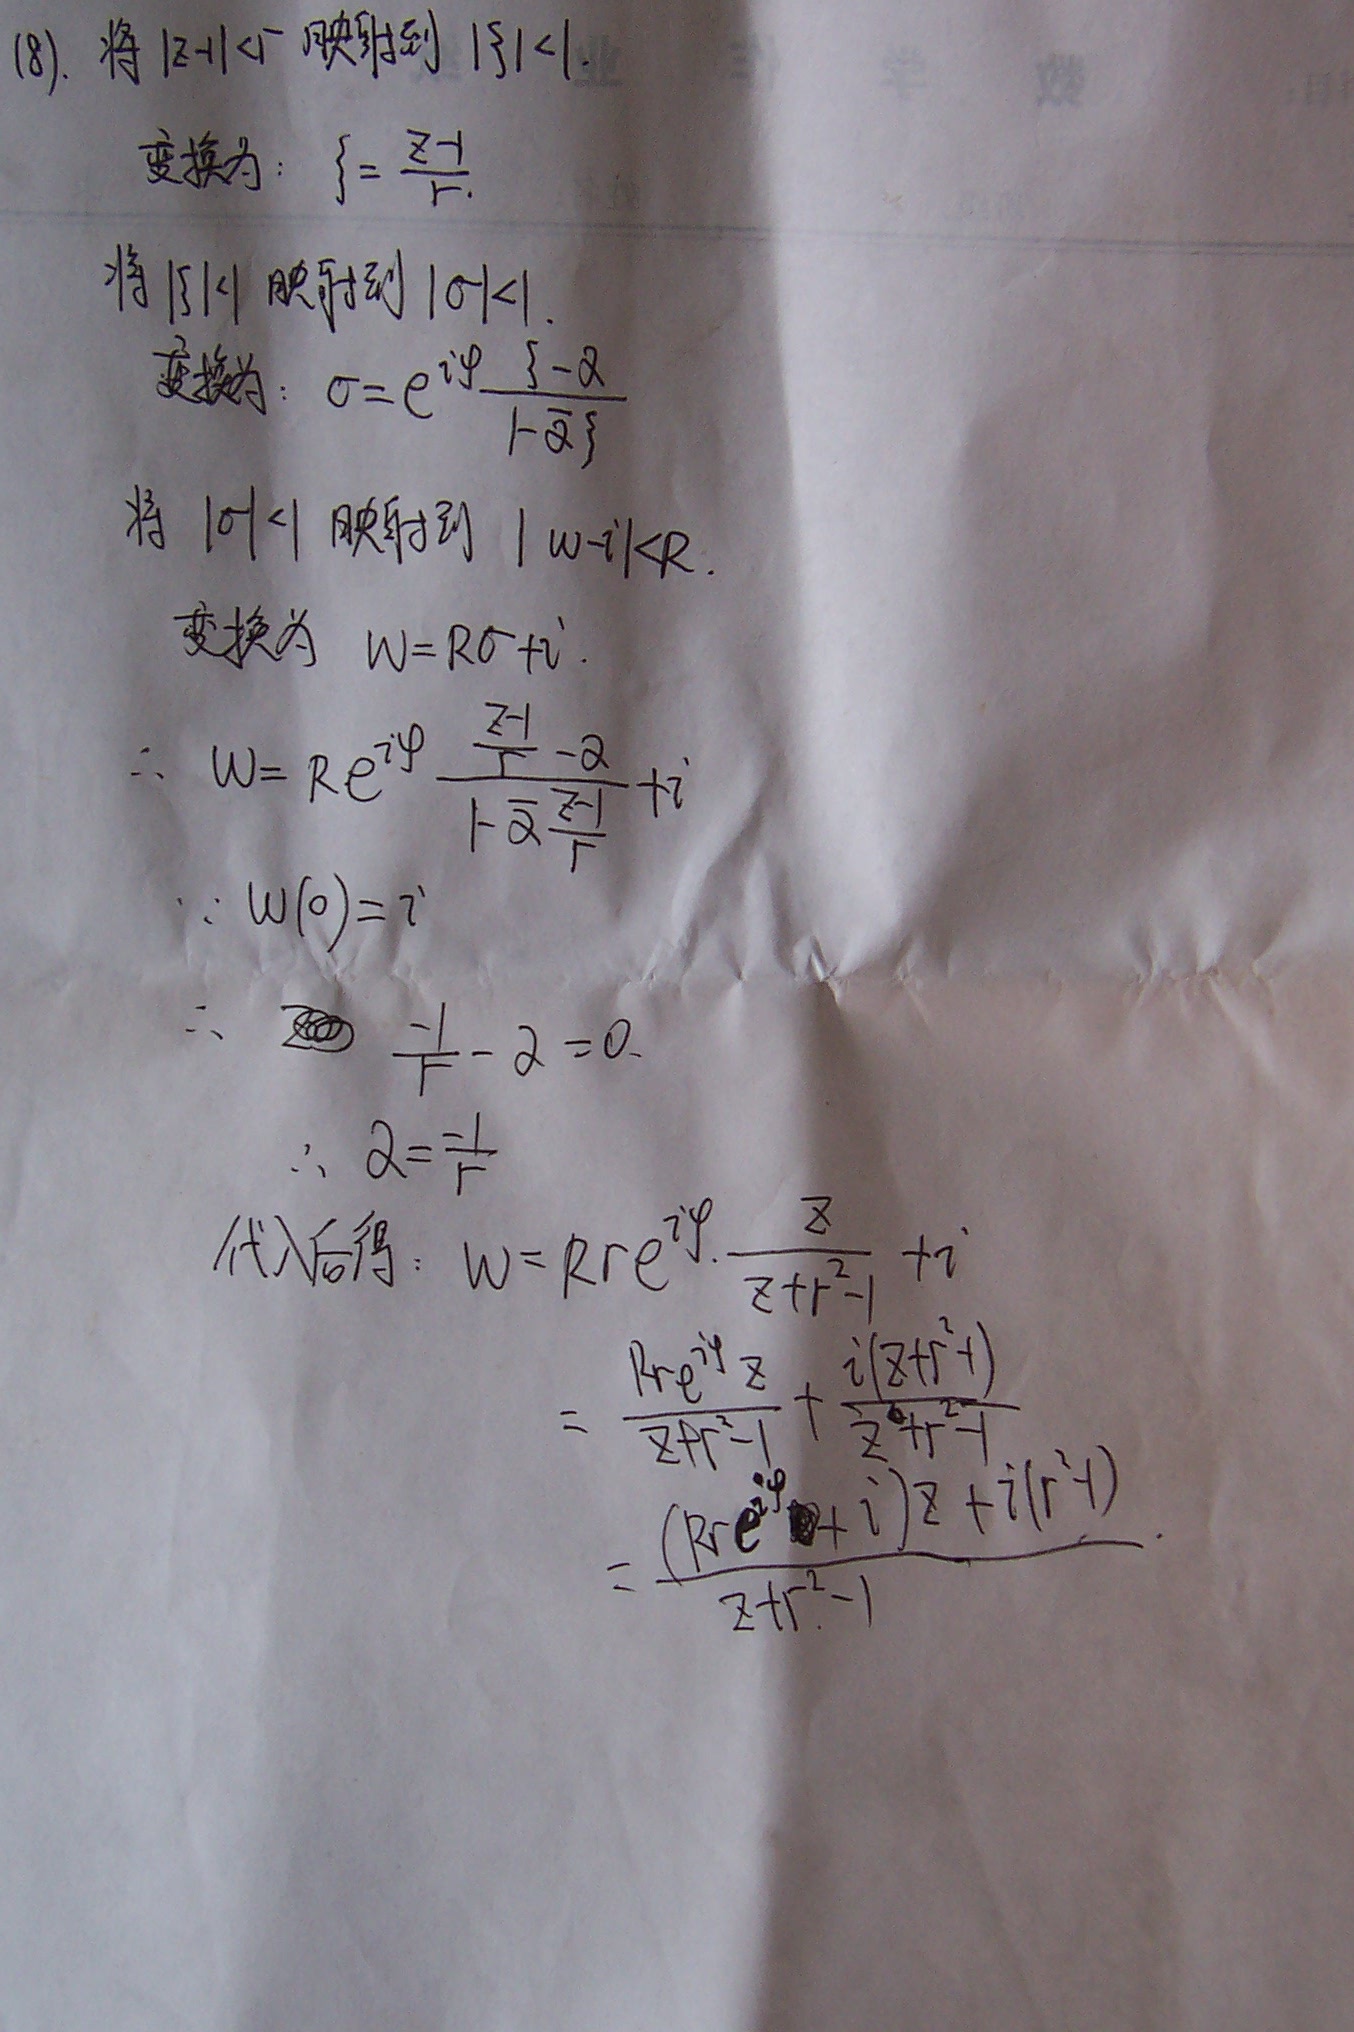 (8). 将 |z-1|<r 映射到 |ξ|<1.
变换为: ξ = \frac{z-1}{r}.
将 |ξ|<1 映射到 |σ|<1.
变换为: σ = e^{iφ} \frac{ξ-α}{1-\bar{α}ξ}
将 |σ|<1 映射到 |w-i|<R.
变换为 w=Rσ+i.
∴ w = Re^{iφ} \frac{\frac{z-1}{r}-α}{1-\bar{α}\frac{z-1}{r}} + i
∵ w(0)=i
∴ \frac{-1}{r} - α = 0.
∴ α = \frac{-1}{r}
代入后得: w = Rre^{iφ}. \frac{z}{z+r^2-1} + i
= \frac{Rre^{iφ}z}{z+r^2-1} + \frac{i(z+r^2-1)}{z+r^2-1}
= \frac{(Rre^{iφ}+i)z+i(r^2-1)}{z+r^2-1}.